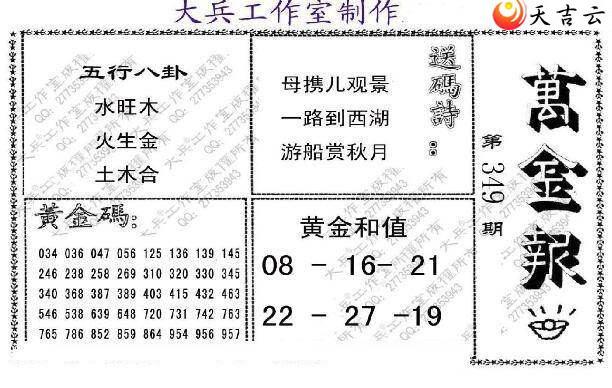 大兵工作室制作
天吉云
五行八卦
水旺木
火生金
土木合
送碼詩：
母携儿观景
一路到西湖
游船赏秋月
萬金報
第349期
黃金碼：
034 036 047 056 125 136 139 145
246 238 258 269 310 320 330 345
340 368 387 389 403 415 432 463
546 538 639 648 720 731 742 763
765 786 852 859 864 954 956 957
黄金和值
08 - 16- 21
22 - 27 -19